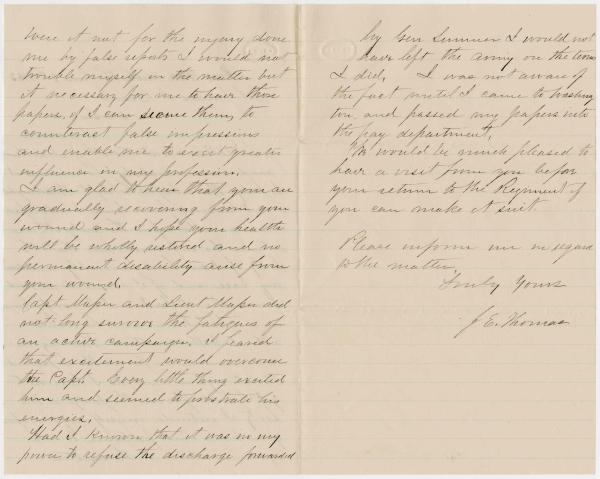 Were it not for the injury done
me by false reports I would not
trouble myself in the matter but
it necessary for me to have those
papers, if I can secure them, to
counteract false impressions
and enable me to exert greater
influence in my profession.
I am glad to learn that your are
gradually recovering from your
wound and I hope your health
will be wholly restored and no
permanent disability arise from
your wound.
Capt and Lieut did
not long survive the fatigues of
an active campaign. I feared
that excitement would overcome
the Capt. Every little thing excited
him and seemed to prostrate his
energies.
Had I known that it was in my
power to refuse the discharge forwarded
by Gen Sumner I would not
have left the army on the terms
I did. I was not aware of
the fact until I came to Washing
ton and passed my papers into
the pay department.
We would be much pleased to
have a visit from you before
your return to the Regiment if
you can make it suit.
Please inform me in regard
to the matter.
Truly Yours
J E. Thomas